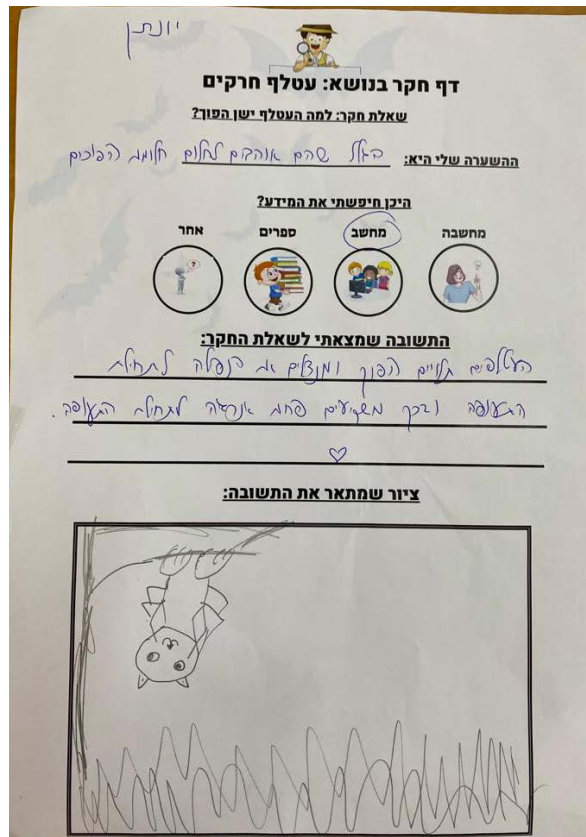 יונתן
דף חקר בנושא: עטלף חרקים
שאלת חקר: למה העטלף ישן הפוך?
ההשערה שלי היא: בגלל שהם אוהבים לחלום חלומות הפוכים
היכן חיפשתי את המידע?
מחשבה מחשב ספרים אחר
התשובה שמצאתי לשאלת החקר:
העטלפים תלויים הפוך ומנצלים את הנפילה לתחילת
התעופה ובכך משקיעים פחות אנרגיה לתחילת התעופה.
ציור שמתאר את התשובה: